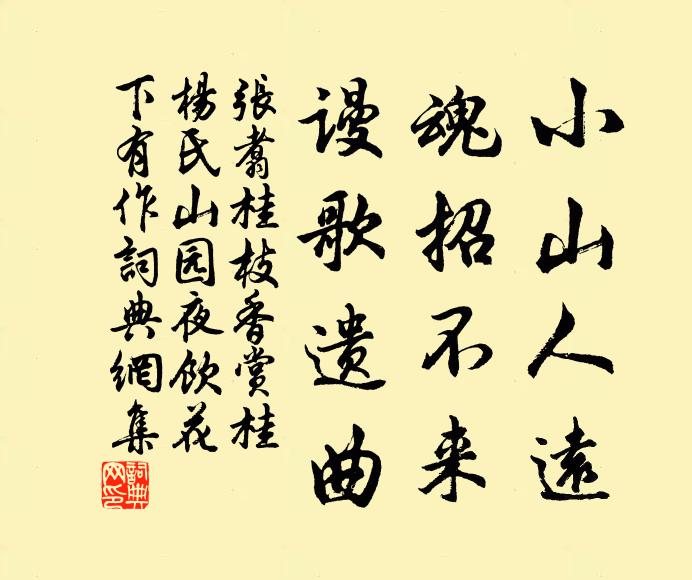 小山人遠
魂招不来
谩歌遗曲
張翥桂枝香赏桂
楊氏山园夜飲花
下有作詞典網集
詞典
网印